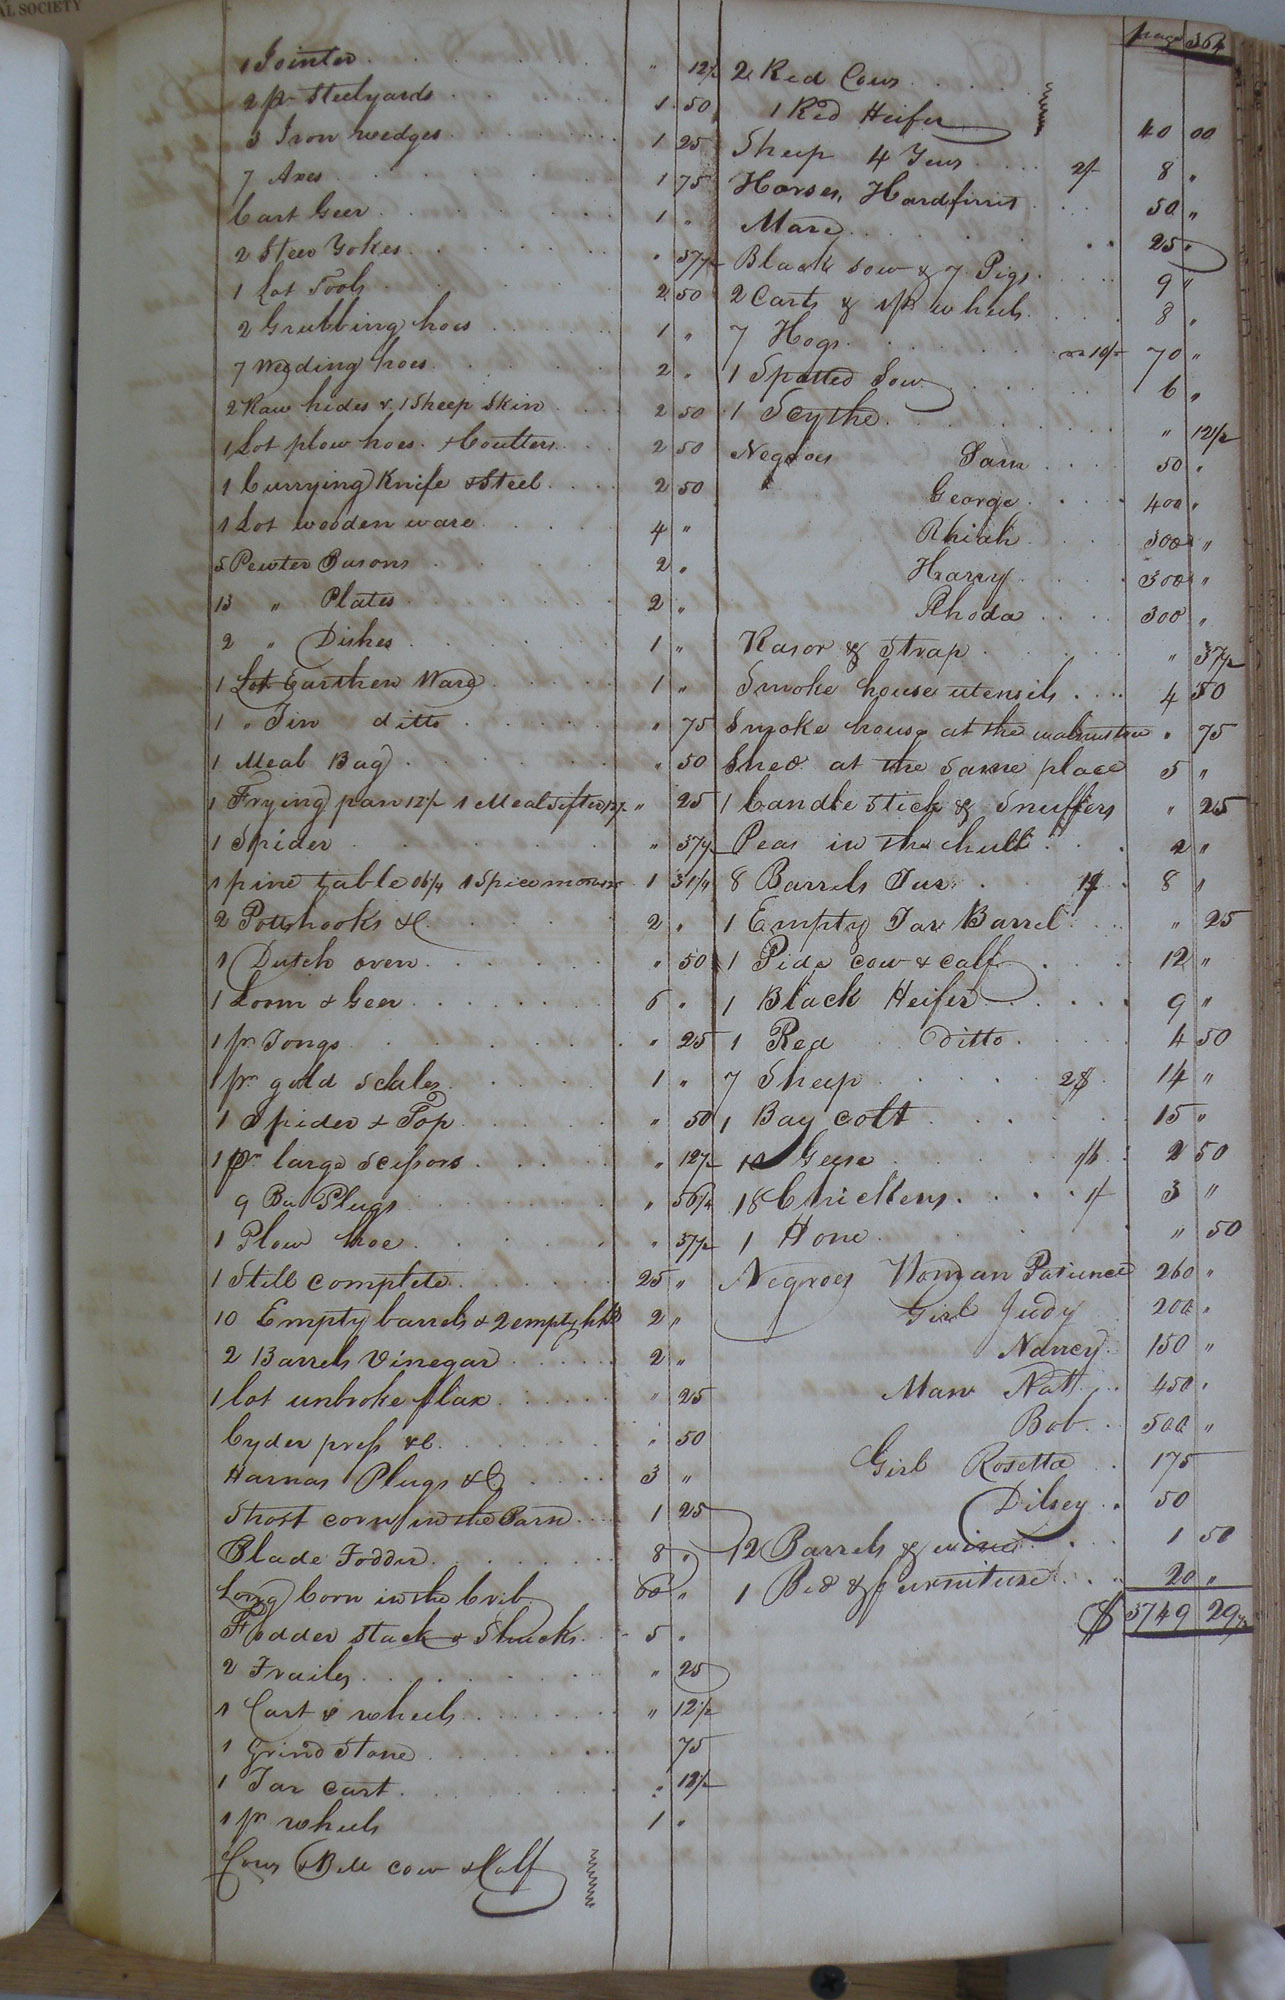 AL SOCIETY
page 364
1 Jointer " 12½
2 pr Steelyards 1 50
3 Iron wedges 1 25
7 Axes 1 75
Cart Geer 1 "
2 Steer Yokes " 37½
1 Lot Tools 2 50
2 Grubbing hoes 1 "
7 Weding hoes 2 "
2 Raw hides & 1 Sheep Skin 2 50
1 Lot plow hoes & Coulters 2 50
1 Currying Knife & Steel 2 50
1 Lot wooden ware 4 "
5 Pewter Basons 2 "
13 " Plates 2 "
2 " Dishes 1 "
1 Lot Earthen Ware 1 "
1 " Tin ditto " 75
1 Meal Bag " 50
1 Frying pan 12½ 1 Meal Sifter 12½ " 25
1 Spider " 37½
1 pine table 06¼ 1 Spice mortar 1 31¼
2 Pott hooks &C 2 "
1 Dutch oven " 50
1 Loom & Geer 6 "
1 pr Tongs " 25
1 pr gold Scales 1 "
1 Spider & Top " 50
1 pr large Scissors " 12½
9 Plugs " 56¼
1 Plow hoe " 37½
1 Still complete 25 "
10 Empty barrels & 2 empty hhds 2 "
2 Barrels Vinegar 2 "
1 lot unbroke flax " 25
Cyder press &C " 50
Harnas Plugs &C 3 "
Short corn in the Barn 1 25
Blade Fodder 8 "
Long Corn in the Crib 60 "
Fodder Stack & Shucks 5 "
2 Frailes " 25
1 Cart & wheels " 12½
1 Grind Stone 75
1 Tar cart " 12½
1 pr wheels 1 "
Cows 1 Bell cow & Calf
2 Red Cows
1 Red Heifer 40 00
Sheep 4 Yews 2/- 8 "
Horses, 50 "
Mare 25 "
Black Sow & 7 Pigs 9 "
2 Carts & 1 pr wheels 8 "
7 Hogs 70 "
1 Spotted Sow 6 "
1 Scythe " 12½
Negroes Sam 50 "
George 400 "
Rhiah 300 "
Harry 300 "
Rhoda 300 "
Rasor & Strap " 37½
Smoke house utensils 4 50
Smoke house at the walnut tree " 75
Shed at the Same place 5 "
1 Candle Stick & Snuffers " 25
Peas in the hull 2 "
8 Barrels Tar 1$ 8 "
1 Empty Tar Barrel " 25
1 Pide cow & calf 12 "
1 Black Heifer 9 "
1 Red Ditto 4 50
7 Sheep 2$ 14 "
1 Bay colt 15 "
Geese 2 50
18 Chickens 1/- 3 "
1 Hone " 50
Negroes Woman Patience 260 "
Girl Judy 200 "
Nancy 150 "
Man Nat 450 "
Bob 500 "
Girl Rosetta 175
Dilsey 50
2 Barrels & wine 1 50
1 Bed & furniture 20 "
$ 3749 29¼